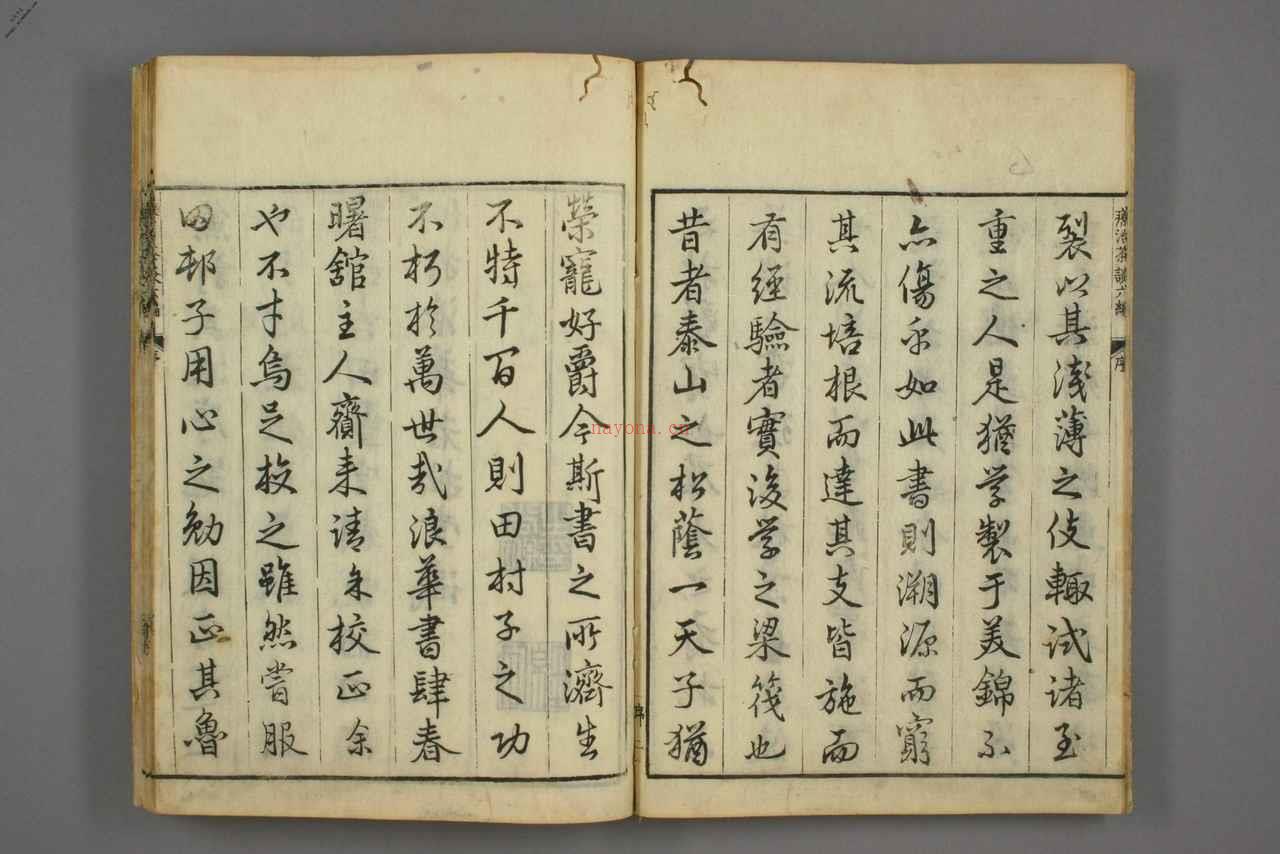 療治茶談六編 序
裂以其淺薄之伎輙試諸至
重之人是猶学製于美錦不
亦傷乎如此書則溯源而窮
其流培根而達其支皆施而
有經驗者實後学之梁筏也
昔者泰山之松蔭一天子猶
序 二
榮寵好爵今斯書之所濟生
不特千百人則田村子之功
不朽於萬世哉浪華書肆春
曙舘主人齎来請余校正余
也不才烏足校之雖然嘗服
田邨子用心之勉因正其魯
nayona.cn